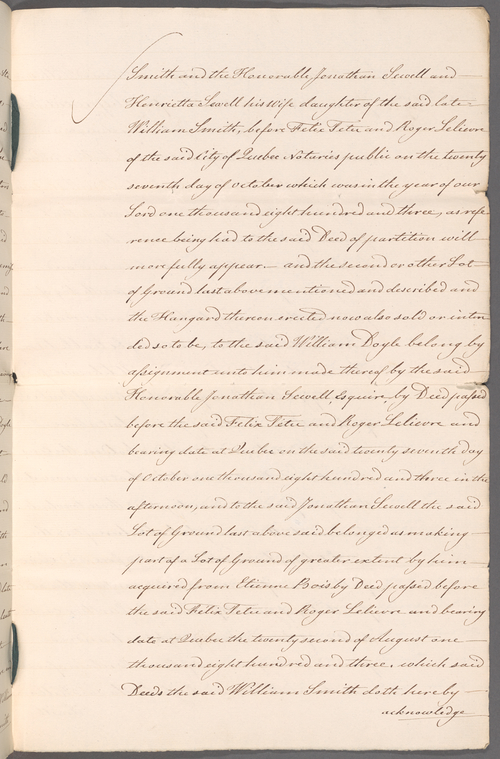 Smith and the Honorable Jonathan Sewell and
Henrietta Sewell his wife daughter of the said late
William Smith, before Felix Tetu and Roger Lelievre
of the said City of Quebec Notaries public on the twenty
seventh day of October which was in the year of our
Lord one thousand eight hundred and three, as refe
rence being had to the said Deed of partition will
more fully appear — and the second or other Lot
of Ground last above mentioned and described and
the Hangard thereon erected now also sold or inten
ded so to be, to the said William Doyle belong by
assignment unto him made thereof by the said
Honorable Jonathan Sewell, Esquire by Deed passed
before the said Felix Tetu and Roger Lelievre and
bearing date at Quebec on the said twenty seventh day
of October one thousand eight hundred and three in the
afternoon, and to the said Jonathan Sewell the said
Lot of Ground last above said belonged as making
part of a Lot of Ground of greater extent by him
acquired from Etienne Bois by Deed passed before
the said Felix Tetu and Roger Lelievre and bearing
date at Quebec the twenty second of August one
thousand eight hundred and three, which said
Deeds the said William Smith doth hereby
acknowledge